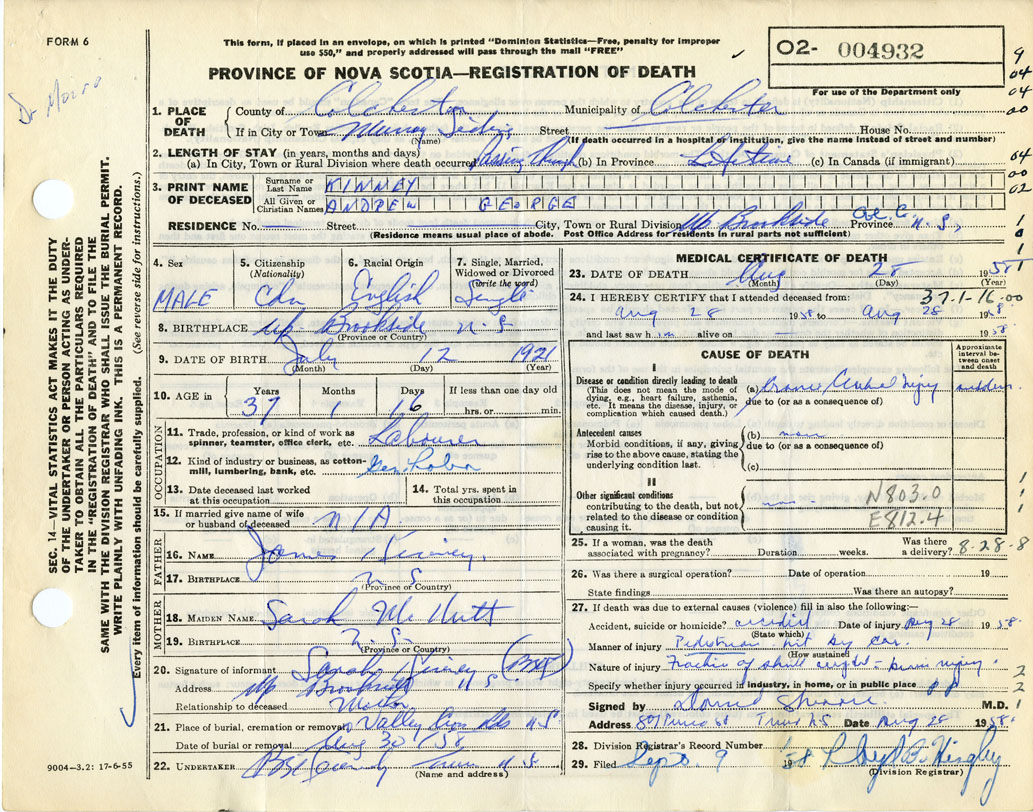 FORM 6
This form, if placed in an envelope, on which is printed "Dominion Statistics—Free, penalty for improper
use $50," and properly addressed will pass through the mail "FREE"
02- 004932
PROVINCE OF NOVA SCOTIA—REGISTRATION OF DEATH
For use of the Department only
1. PLACE OF DEATH
County of Colchester Municipality of Colchester
If in City or Town Murray Siding Street House No.
(Name) (If death occurred in a hospital or institution, give the name instead of street and number)
2. LENGTH OF STAY (in years, months and days)
(a) In City, Town or Rural Division where death occurred Passing Through (b) In Province Lifetime (c) In Canada (if immigrant)
3. PRINT NAME OF DECEASED
Surname or Last Name KINNEY
All Given or Christian Names ANDREW GEORGE
RESIDENCE No. Street City, Town or Rural Division Up Brookside Col. Co. Province N.S.
(Residence means usual place of abode. Post Office Address for residents in rural parts not sufficient)
4. Sex MALE
5. Citizenship (Nationality) Cdn
6. Racial Origin English
7. Single, Married, Widowed or Divorced (write the word) Single
8. BIRTHPLACE Up. Brookside N.S
(Province or Country)
9. DATE OF BIRTH July 12 1921
(Month) (Day) (Year)
10. AGE in Years 37 Months 1 Days 16 If less than one day old hrs. or min.
OCCUPATION
11. Trade, profession or kind of work as spinner, teamster, office clerk, etc. Labourer
12. Kind of industry or business, as cotton-mill, lumbering, bank, etc. Gen. Labor
13. Date deceased last worked at this occupation
14. Total yrs. spent in this occupation
15. If married give name of wife or husband of deceased N/A
FATHER
16. NAME James Kinney
17. BIRTHPLACE N.S
(Province or Country)
MOTHER
18. MAIDEN NAME Sarah McNutt
19. BIRTHPLACE N.S.
(Province or Country)
20. Signature of informant Sarah Kinney
Address Up Brookside N S
Relationship to deceased Mother
21. Place of burial, cremation or removal Valley N S
Date of burial or removal Aug 30 1958
22. UNDERTAKER N S
(Name and address)
9004—3.2: 17-6-55
MEDICAL CERTIFICATE OF DEATH
23. DATE OF DEATH Aug 28 1958
(Month) (Day) (Year)
24. I HEREBY CERTIFY that I attended deceased from: 37-1-16-00
Aug 28 1958 to Aug 28 1958
and last saw him alive on 1958
CAUSE OF DEATH
Approximate interval between onset and death
I
Disease or condition directly leading to death
(This does not mean the mode of dying, e.g., heart failure, asthenia, etc. It means the disease, injury, or complication which caused death.)
(a) Injury sudden
due to (or as a consequence of)
Antecedent causes
Morbid conditions, if any, giving rise to the above cause, stating the underlying condition last.
(b)
due to (or as a consequence of)
(c)
II
Other significant conditions
contributing to the death, but not related to the disease or condition causing it.
N803.0
E812.4
25. If a woman, was the death associated with pregnancy? Duration weeks. Was there a delivery? 8-28-8
26. Was there a surgical operation? Date of operation 19
State findings Was there an autopsy?
27. If death was due to external causes (violence) fill in also the following:
Accident, suicide or homicide? accident Date of injury Aug 28 1958
(State which)
Manner of injury Pedestrian hit by car.
(How sustained)
Nature of injury Fracture of skull - brain injury.
Specify whether injury occurred in industry, in home, or in public place pp
Signed by M.D.
Address Truro N.S Date Aug 28 1958
28. Division Registrar's Record Number
29. Filed Sept. 9 1958
(Division Registrar)
SEC. 14—VITAL STATISTICS ACT MAKES IT THE DUTY
OF THE UNDERTAKER OR PERSON ACTING AS UNDER-
TAKER TO OBTAIN ALL THE PARTICULARS REQUIRED
IN THE "REGISTRATION OF DEATH" AND TO FILE THE
SAME WITH THE DIVISION REGISTRAR WHO SHALL ISSUE THE BURIAL PERMIT.
WRITE PLAINLY WITH UNFADING INK. THIS IS A PERMANENT RECORD.
Every item of information should be carefully supplied. (See reverse side for instructions.)